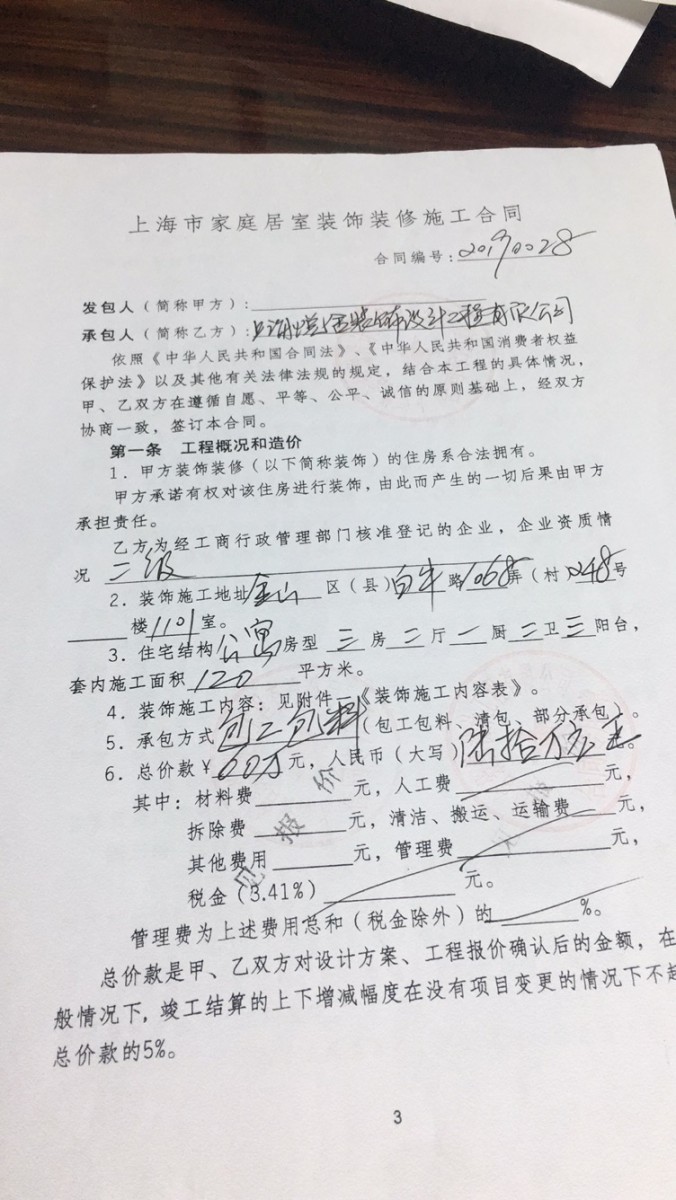 上海市家庭居室装饰装修施工合同
合同编号:20190028
发包人(简称甲方):
承包人(简称乙方):上海 装饰设计工程有限公司
依照《中华人民共和国合同法》、《中华人民共和国消费者权益
保护法》以及其他有关法律法规的规定,结合本工程的具体情况,
甲、乙双方在遵循自愿、平等、公平、诚信的原则基础上,经双方
协商一致,签订本合同。
第一条 工程概况和造价
1.甲方装饰装修(以下简称装饰)的住房系合法拥有。
甲方承诺有权对该住房进行装饰,由此而产生的一切后果由甲方
承担责任。
乙方为经工商行政管理部门核准登记的企业,企业资质情
况 二级
2.装饰施工地址金山 区(县)白牛路1068弄(村) 号
楼1101室。
3.住宅结构公寓房型 三 房 二 厅 一 厨 二 卫 三 阳台,
套内施工面积 120 平方米。
4.装饰施工内容:见附件一《装饰施工内容表》。
5.承包方式包工包料(包工包料、清包、部分承包)。
6.总价款¥60万元,人民币(大写)陆拾万元正。
其中:材料费 元,人工费 元,
拆除费 元,清洁、搬运、运输费 元,
其他费用 元,管理费 元,
税金(3.41%) 元。
见报价
管理费为上述费用总和(税金除外)的 %。
总价款是甲、乙双方对设计方案、工程报价确认后的金额,在
般情况下,竣工结算的上下增减幅度在没有项目变更的情况下不超
总价款的5%。
3